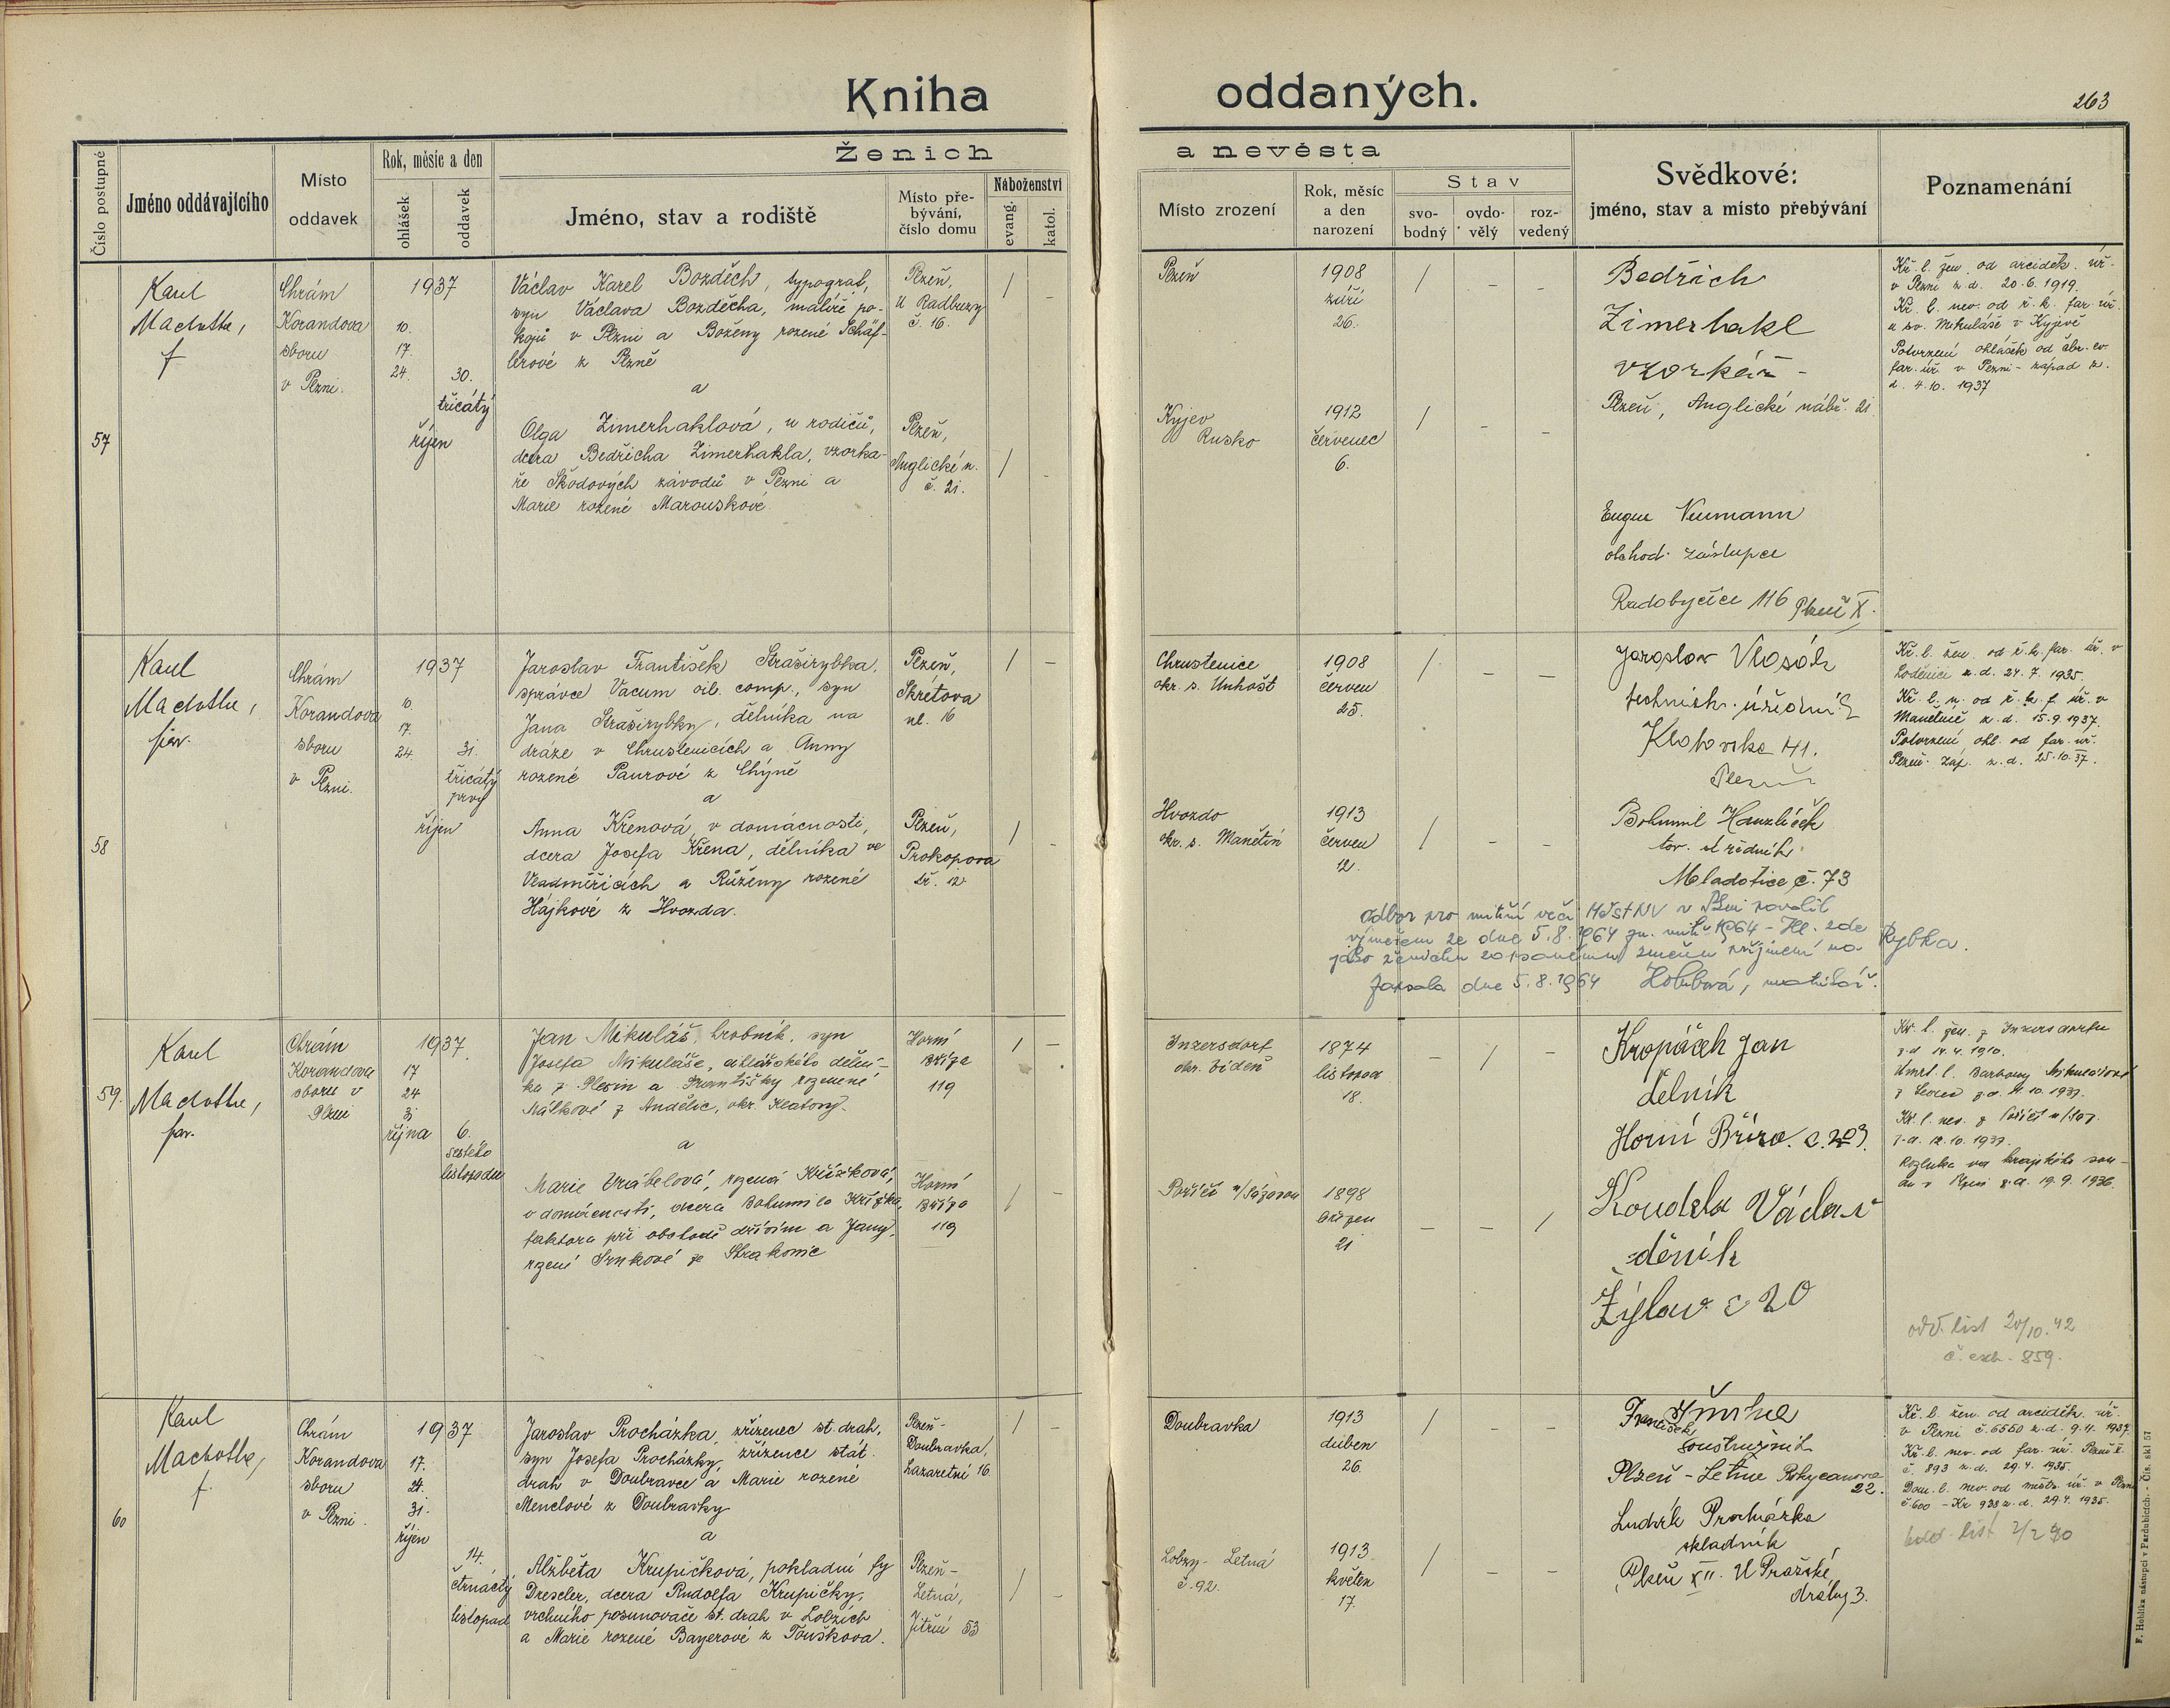 Kniha oddaných.
263
Číslo postupné
Jméno oddávajícího
Místo
oddavek
Rok, měsíc a den
ohlášek
oddavek
Ženich
a nevěsta
Jméno, stav a rodiště
Místo pře-
bývání,
číslo domu
Náboženství
evang.
katol.
Místo zrození
Rok, měsíc
a den
narození
Stav
svo-
bodný
ovdo-
vělý
roz-
vedený
Svědkové:
jméno, stav a místo přebývání
Poznamenání
57
Karel
Machotka,
f
Chrám
Korandova
sboru
v Plzni.
1937
10.
17.
24.
30.
třicátý
říjen
Václav Karel Bozděch, typograf,
syn Václava Bozděcha, malíře po-
kojů v Plzni a Boženy rozené Schäf-
lerové z Plzně
a
Olga Zimerhaklová, u rodičů,
dcera Bedřicha Zimerhakla, vzorka-
ře Škodových závodů v Plzni a
Marie rozené Marouskové
Plzeň,
U Radbuzy
č. 16.
Plzeň,
Anglické n.
č. 21.
/ –
/ –
Plzeň
Kyjev
Rusko
1908
září
26.
1912
červenec
6.
/ – –
/ – –
Bedřich
Zimerhakl
vzorkář –
Plzeň, Anglické nábř. 21
Eugen Neumann
obchod. zástupce
Radobyčice 116 Plzeň X.
Kř. l. žen. od arciděk. úř.
v Plzni z d. 20.6.1919.
Kř. l. nev. od ř. k. far. úř.
u sv. Mikuláše v Kyjevě
Potvrzení ohlášek od čbr. ev.
far. úř. v Plzni - západ z.
d. 4.10. 1937
58
Karel
Machotka,
far.
Chrám
Korandova
sboru
v Plzni.
1937
10.
17.
24.
31.
třicátý
prvý
říjen
Jaroslav František Straširybka,
správce Vacum oil. comp., syn
Jana Straširybky, dělníka na
dráze v Chrustenicích a Anny
rozené Paurové z Chýně
a
Anna Křenová, v domácnosti,
dcera Josefa Křena, dělníka ve
Vladměřicích a Růženy rozené
Hájkové z Hvozda.
Plzeň,
Skrétova
ul. 16
Plzeň,
Prokopova
tř. 12.
/ –
/ –
Chrustenice
okr. s. Unhošť
Hvozdo
okr. s. Manětín
1908
červen
25.
1913
červen
12.
/ – –
/ – –
Jaroslav
technick. úředník
Klatovska 141.
Plzeň
Bohumil Hanzlíček
tov. úředník
Mladotice č. 73
Kř. l. žen. od ř. k. far. úř. v
Loděnici z. d. 24.7. 1935.
Kř. l. n. od ř. k. f. úř. v
Manětíně z. d. 15.9.1937.
Potvrzení ohl. od far. úř.
Plzeň. záp. z. d. 25.10.37.
Odbor pro vnitřní věci MěstNV v Plzni povolil
výměrem ze dne 5.8.1964 zn. vnitř. 1964 - Hl. zde
jako ženichu zapsanému změnu příjmení na Rybka.
Zapsala dne 5.8.1964 Holubová, matrikář.
59.
Karel
Machotka,
far.
Chrám
Korandova
sboru v
Plzni
1937.
17
24
31
října
6.
šestého
listopadu
Jan Mikuláš, hrobník, syn
Josefa Mikuláše, cihlářského dělní-
ka z Plesin a Františky rozené
Nálkové z Andělic, okr. Klatovy.
a
Marie Vrábelová, rozená Křížková,
v domácnosti, dcera Bohumila Křížka,
faktora při obchodě dřívím a Jany,
rozené Srnkové ze Strakonic
Horní
Bříza
119
Horní
Bříza
119
/ –
/ –
Inzersdorf
okr. Vídeň
Poříčí n/Sázavou
1874
listopad
18.
1898
březen
21
– / –
– – /
Kropáček Jan
dělník
Horní Bříza. č. 203.
Koudela Václav
dělník
Žilov č 20
Kř. l. žen. z Inzersdorfu
z d. 14.4.1910.
Úmrt. l. Barbory Mikulášové
z. d. 11.10.1937.
Kř. l. nev. z Poříčí n/Sáz.
z. d. 12.10.1937.
Rozluka od krajského sou-
du v Plzni z. d. 19.9.1936.
odd. list 20/10.42
č. exh. 859.
60
Karel
Machotka,
f.
Chrám
Korandova
sboru
v Plzni.
1937
17.
24.
31.
říjen
14.
čtrnáctý
listopad
Jaroslav Procházka, zřízenec st. drah,
syn Josefa Procházky, zřízence stát.
drah v Doubravce a Marie rozené
Menclové z Doubravky
a
Alžběta Krupičková, pokladní fy
Drescler, dcera Rudolfa Krupičky,
vrchního posunovače st. drah v Lobzích
a Marie rozené Bayerové z Touškova.
Plzeň-
Doubravka,
Lazaretní 16.
Plzeň-
Letná,
Jitřní 53
/ –
/ –
Doubravka
Lobzy - Letná
č. 92.
1913
duben
26.
1913
květen
17.
/ – –
/ – –
František Šmrha
soustružník
Plzeň - Letná Rokycanova
22.
Luděk Procházka
skladník
Plzeň XII. U Pražské
dráhy 3.
Kř. l. žen. od arciděk. úř.
v Plzni č. 6550 z. d. 9.4. 1937.
Kř. l. nev. od far. úř. Plzeň I.
č. 893 z. d. 29.4. 1935.
Dom. l. nev. od měst. úř. v Plzni
č. 600 - Kr 938 z. d. 29.4. 1935.
odd. list 2/2 40
F. Hoblíka nástupci v Pardubicích. - Čís. skl. 57